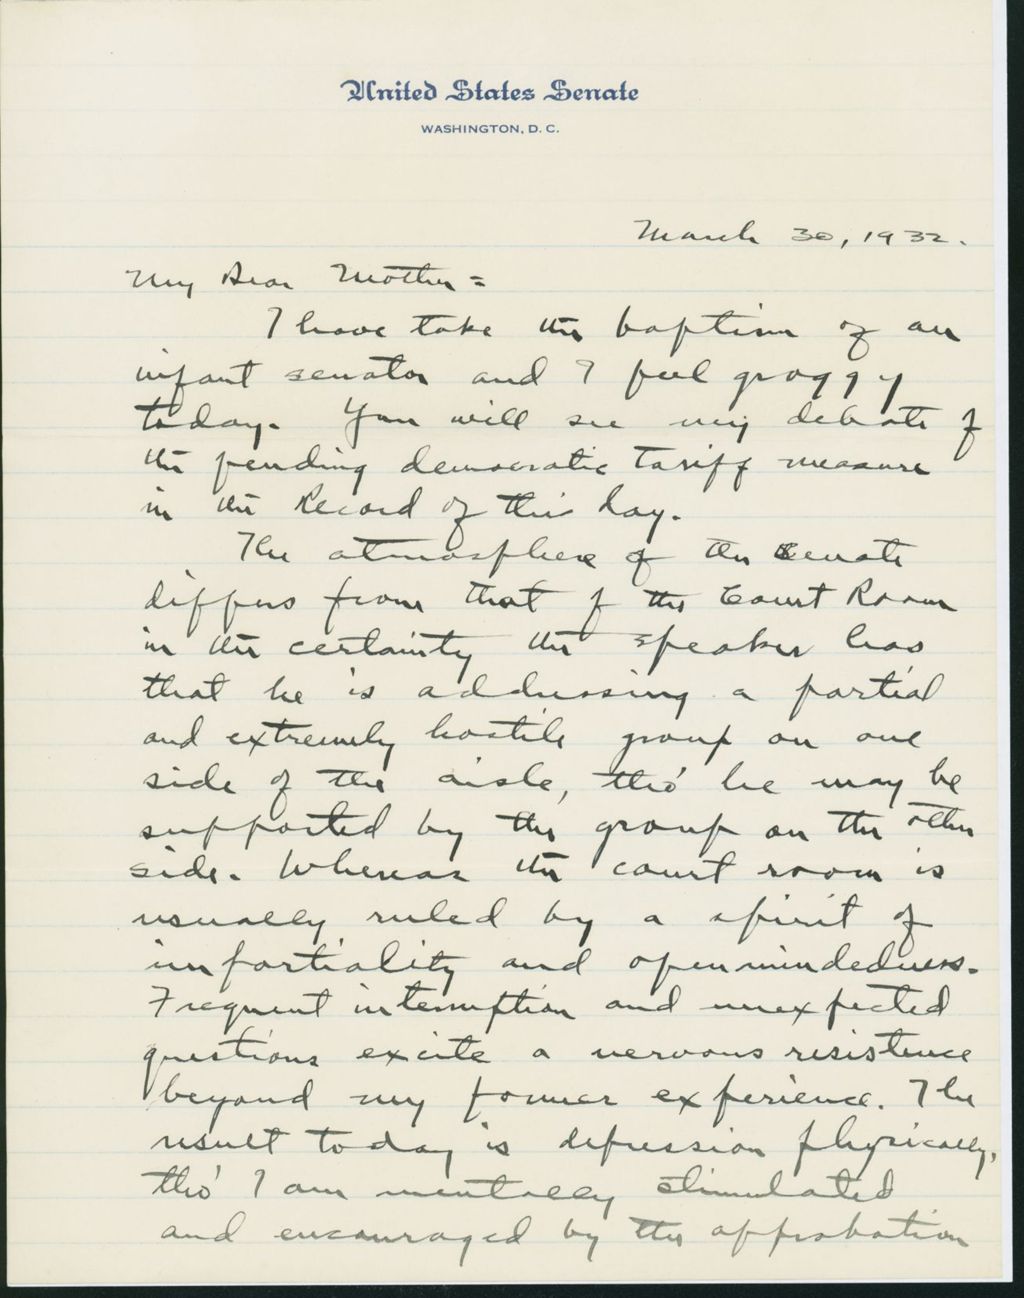 United States Senate
WASHINGTON, D. C.
March 30, 1932.
My Dear Mother =
I have take the baptism of an
infant senator and I feel groggy
today. You will see my debate of
the pending democratic tariff measure
in the Record of this day.
The atmosphere of the Senate
differs from that of the Court Room
in the certainty the speaker has
that he is addressing a partial
and extremely hostile group on one
side of the aisle, tho' he may be
supported by the group on the other
side. Whereas the court room is
usually ruled by a spirit of
impartiality and openmindedness.
Frequent interruption and unexpected
questions excite a nervous resistence
beyond my former experience. The
result today is depression physically,
tho' I am mentally stimulated
and encouraged by the approbation